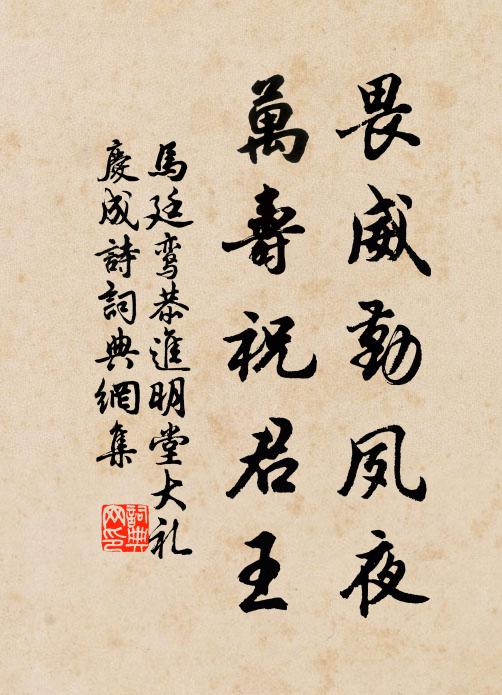 畏威勤夙夜
萬壽祝君王
馬廷鸾恭進明堂大礼
慶成詩詞典網集
詞典网印